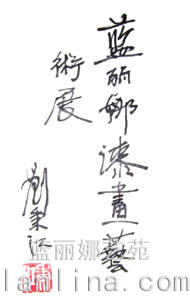 蓝丽娜漆畫藝
術展
劉秉江
蓝丽娜艺苑
lanlina.com